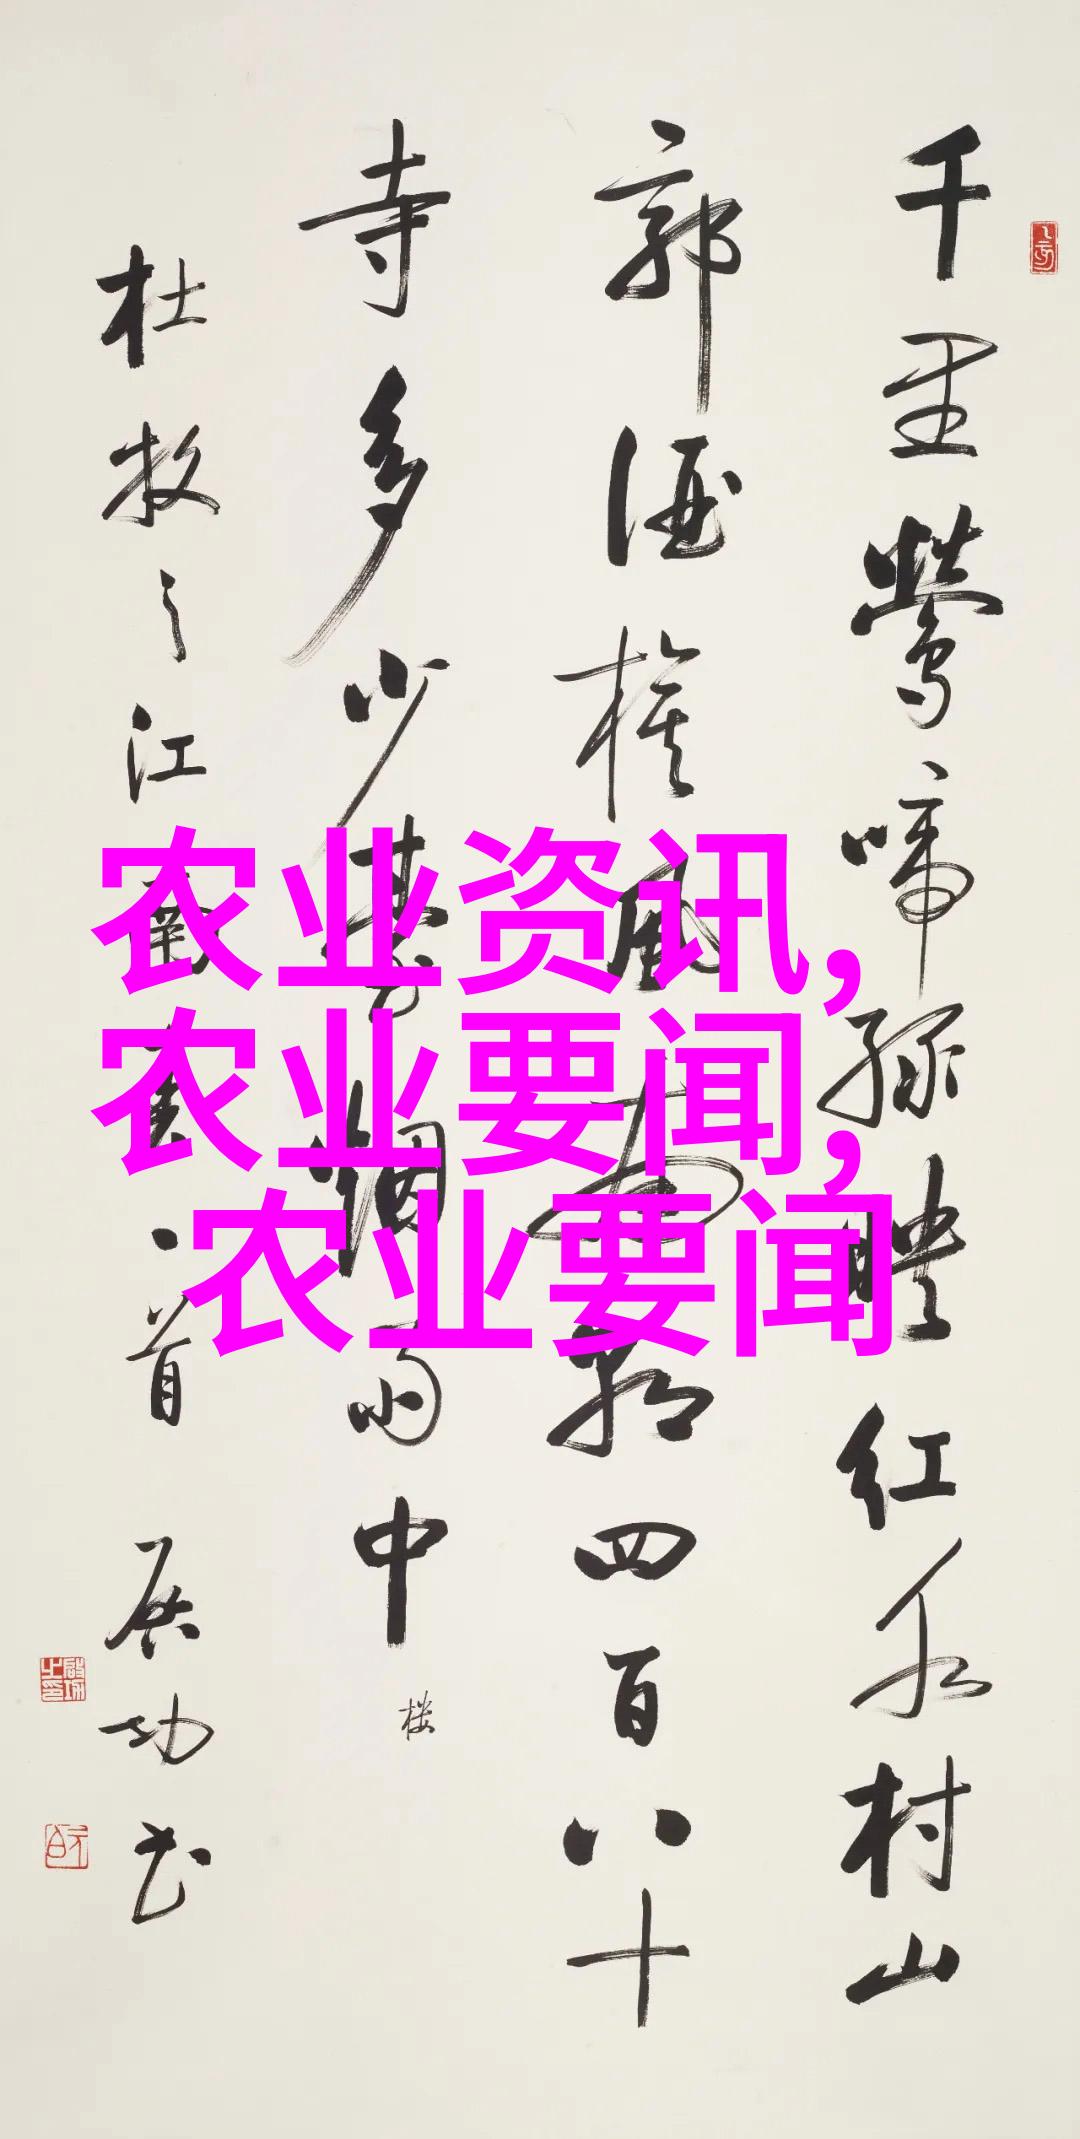 千里鶯啼绿映红水村山
郭酒旗风南朝四百八十
寺多少臺烟雨中
楼
杜牧之江南春一首 启功书
农业资讯,
农业要闻,
农业要闻